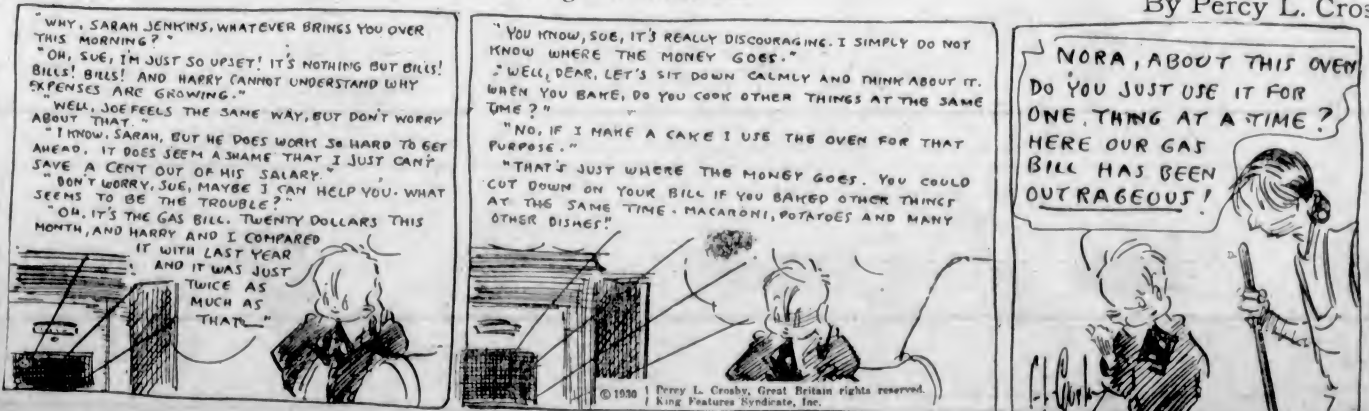 By Percy L. Cros
"WHY, SARAH JENKINS, WHATEVER BRINGS YOU OVER
THIS MORNING?"
"OH, SUE, I'M JUST SO UPSET! IT'S NOTHING BUT BILLS!
BILLS! BILLS! AND HARRY CANNOT UNDERSTAND WHY
EXPENSES ARE GROWING."
"WELL, JOE FEELS THE SAME WAY, BUT DON'T WORRY
ABOUT THAT."
"I KNOW, SARAH, BUT HE DOES WORK SO HARD TO GET
AHEAD. IT DOES SEEM A SHAME THAT I JUST CAN'T
SAVE A CENT OUT OF HIS SALARY."
"DON'T WORRY, SUE, MAYBE I CAN HELP YOU. WHAT
SEEMS TO BE THE TROUBLE?"
"OH, IT'S THE GAS BILL. TWENTY DOLLARS THIS
MONTH, AND HARRY AND I COMPARED
IT WITH LAST YEAR
AND IT WAS JUST
TWICE AS
MUCH AS
THAT—"
"YOU KNOW, SUE, IT'S REALLY DISCOURAGING. I SIMPLY DO NOT
KNOW WHERE THE MONEY GOES."
"WELL, DEAR, LET'S SIT DOWN CALMLY AND THINK ABOUT IT.
WHEN YOU BAKE, DO YOU COOK OTHER THINGS AT THE SAME
TIME?"
"NO, IF I MAKE A CAKE I USE THE OVEN FOR THAT
PURPOSE."
"THAT'S JUST WHERE THE MONEY GOES. YOU COULD
CUT DOWN ON YOUR BILL IF YOU BAKED OTHER THINGS
AT THE SAME TIME. MACARONI, POTATOES AND MANY
OTHER DISHES."
© 1930 Percy L. Crosby, Great Britain rights reserved.
King Features Syndicate, Inc.
NORA, ABOUT THIS OVEN
DO YOU JUST USE IT FOR
ONE THING AT A TIME?
HERE OUR GAS
BILL HAS BEEN
OUTRAGEOUS!